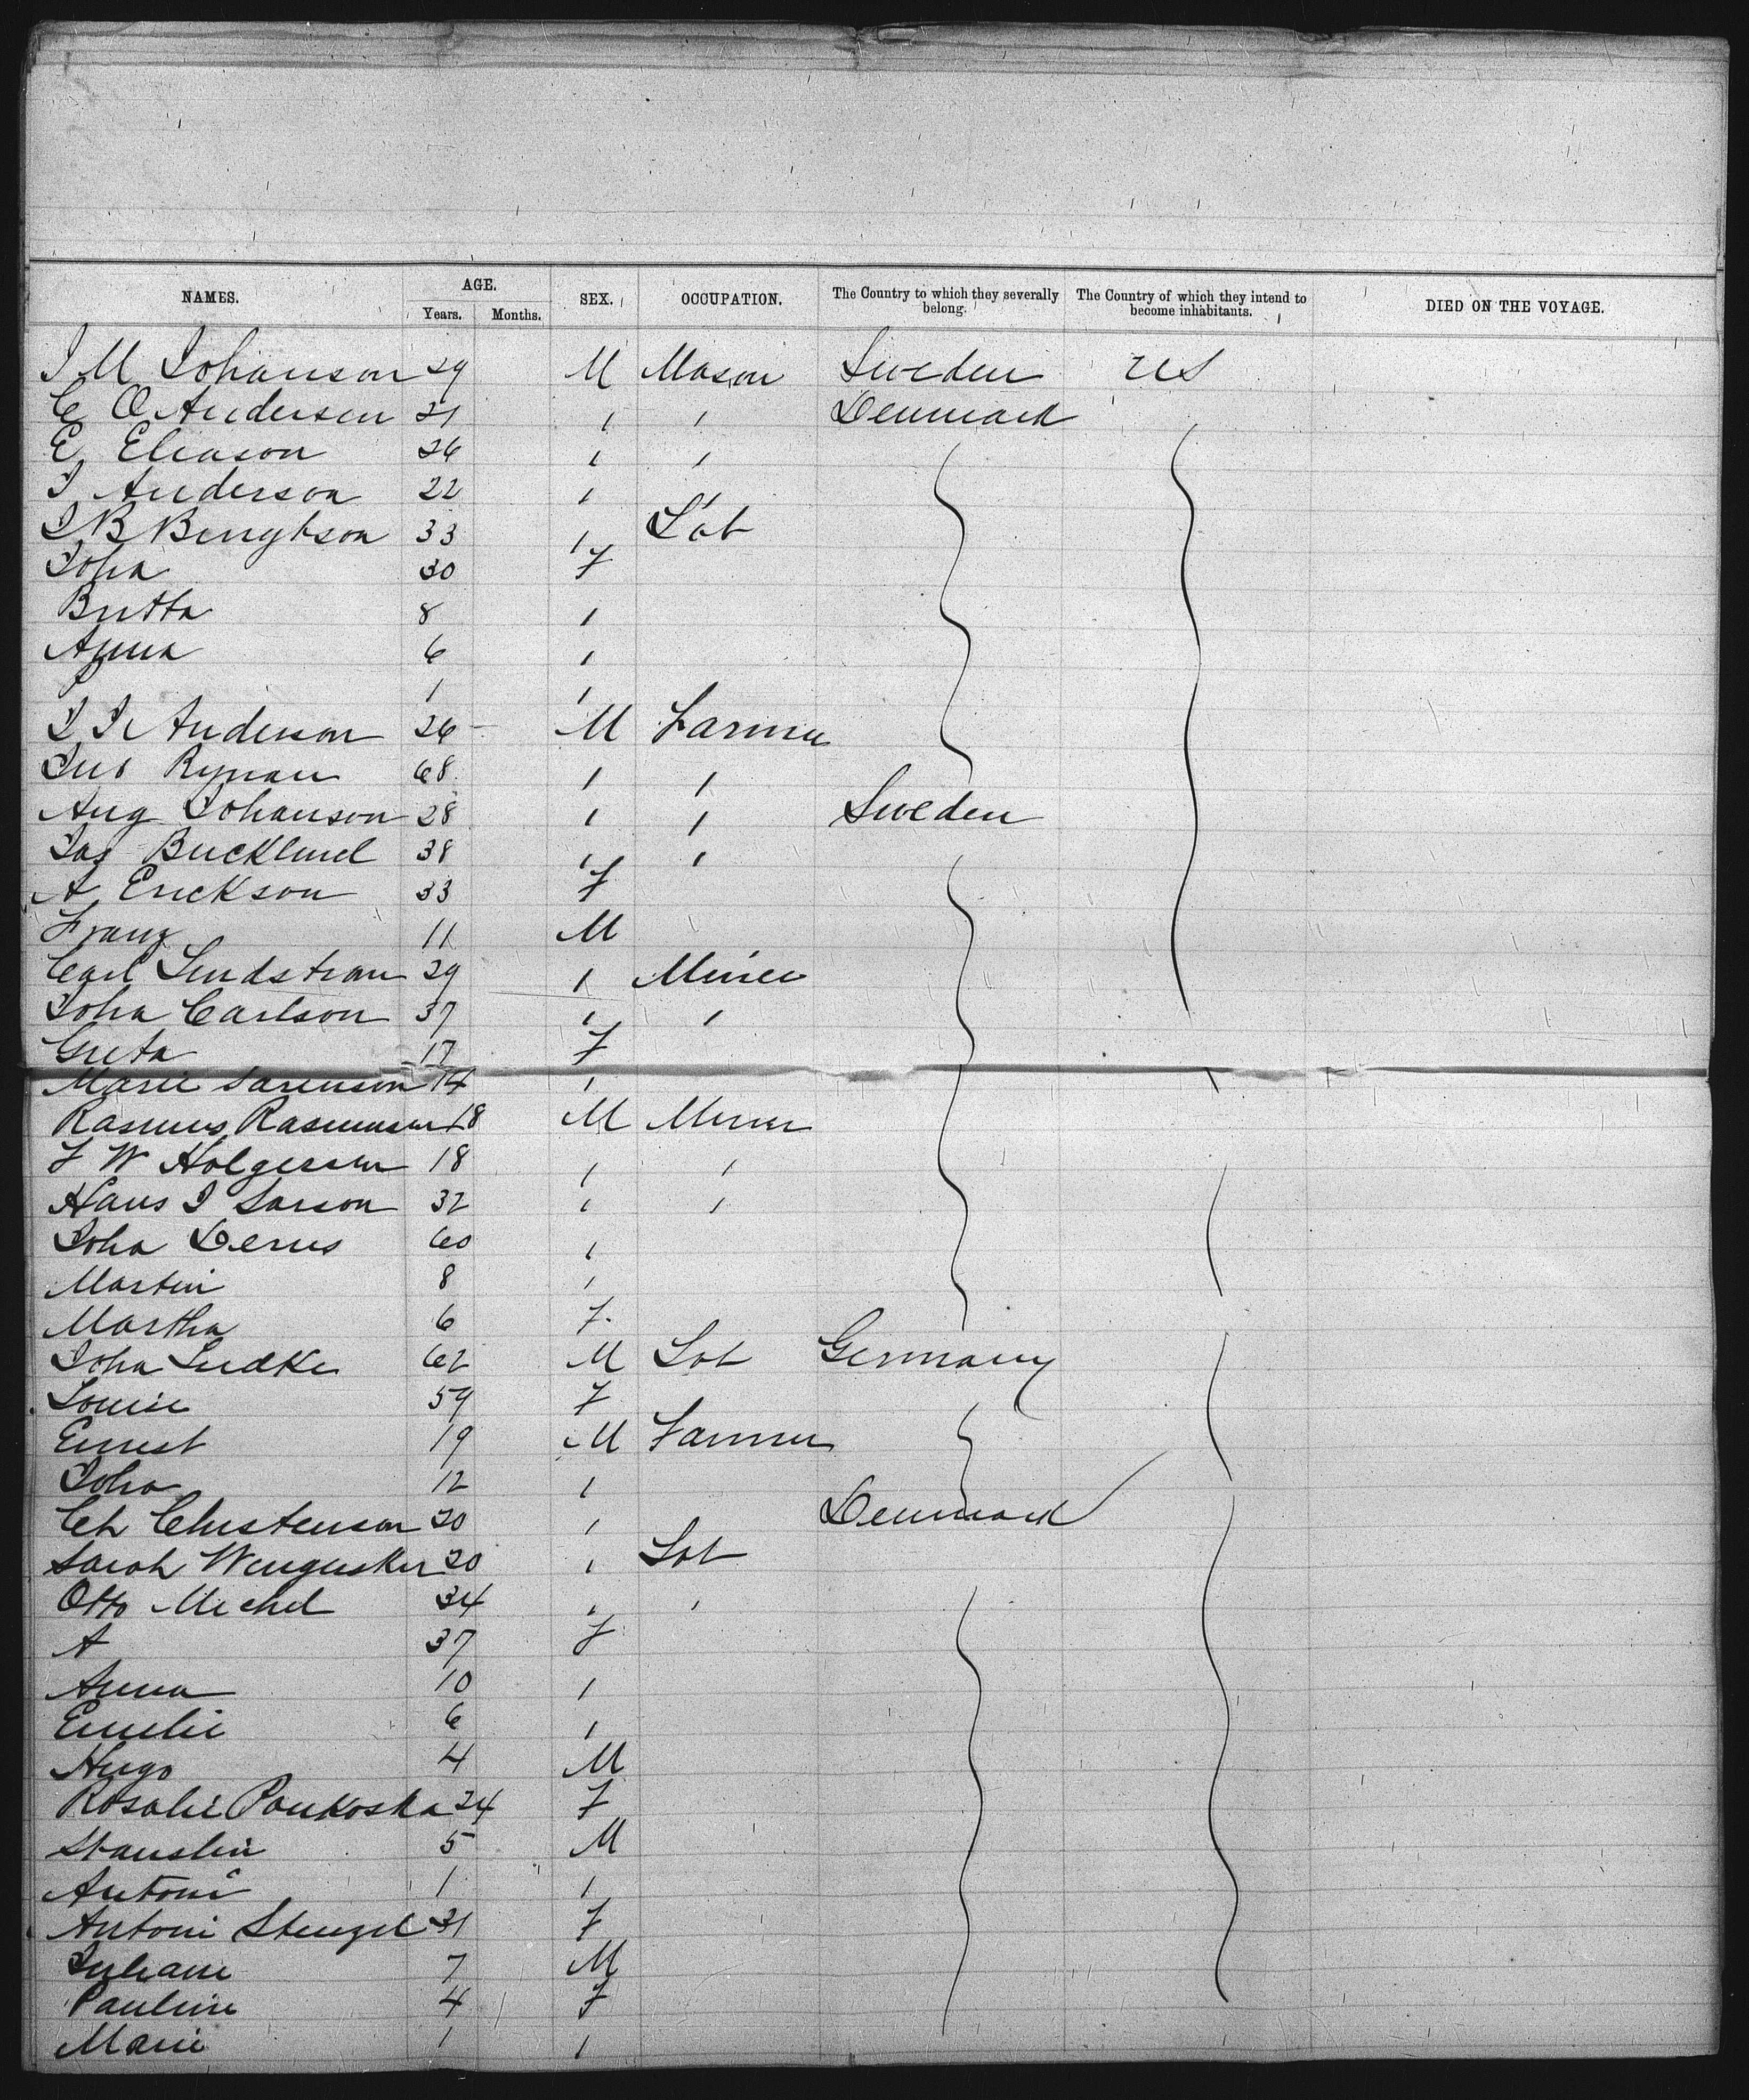 NAMES. AGE. SEX. OCCUPATION. The Country to which they severally belong. The Country of which they intend to become inhabitants. DIED ON THE VOYAGE.
Years. Months.
J M Johanson 29 M Mason Sweden US
C O Andersen 21 " " Denmark
E Eliason 26 " "
J Anderson 22 " "
J B Bengtson 33 " Lab
Joha 30 F
Britta 8 "
Anna 6 "
1 "
J Anderson 26 M Farmer
Jno Ryman 68 " "
Aug Johanson 28 " " Sweden
Jas Bucklund 38 " "
A Erickson 33 F
Franz 11 M
Carl Lindstran 29 " Miner
Joha Carlson 37 " "
Greta 17 F
Marie Sarenson 14 "
Rasmus Rasmussen 18 M Miner
F W Holgersen 18 " "
Hans J Larson 32 " "
Joha Derus 60 "
Martin 8 "
Martha 6 F
Joha Ludke 62 M Lab Germany
Louise 59 F
Ernest 19 M Farmer
Joha 12 "
Ch Christenson 20 " Denmark
Sarah 20 " Lab
Otto Michel 34 " "
A 37 F
Anna 10 "
Emelie 6 "
Hugo 4 M
Rosalie Pankoska 24 F
Stanslin 5 M
Antoni 1 "
Antoni Stengel 31 F
Juliane 7 M
Pauline 4 F
Marie 1 "